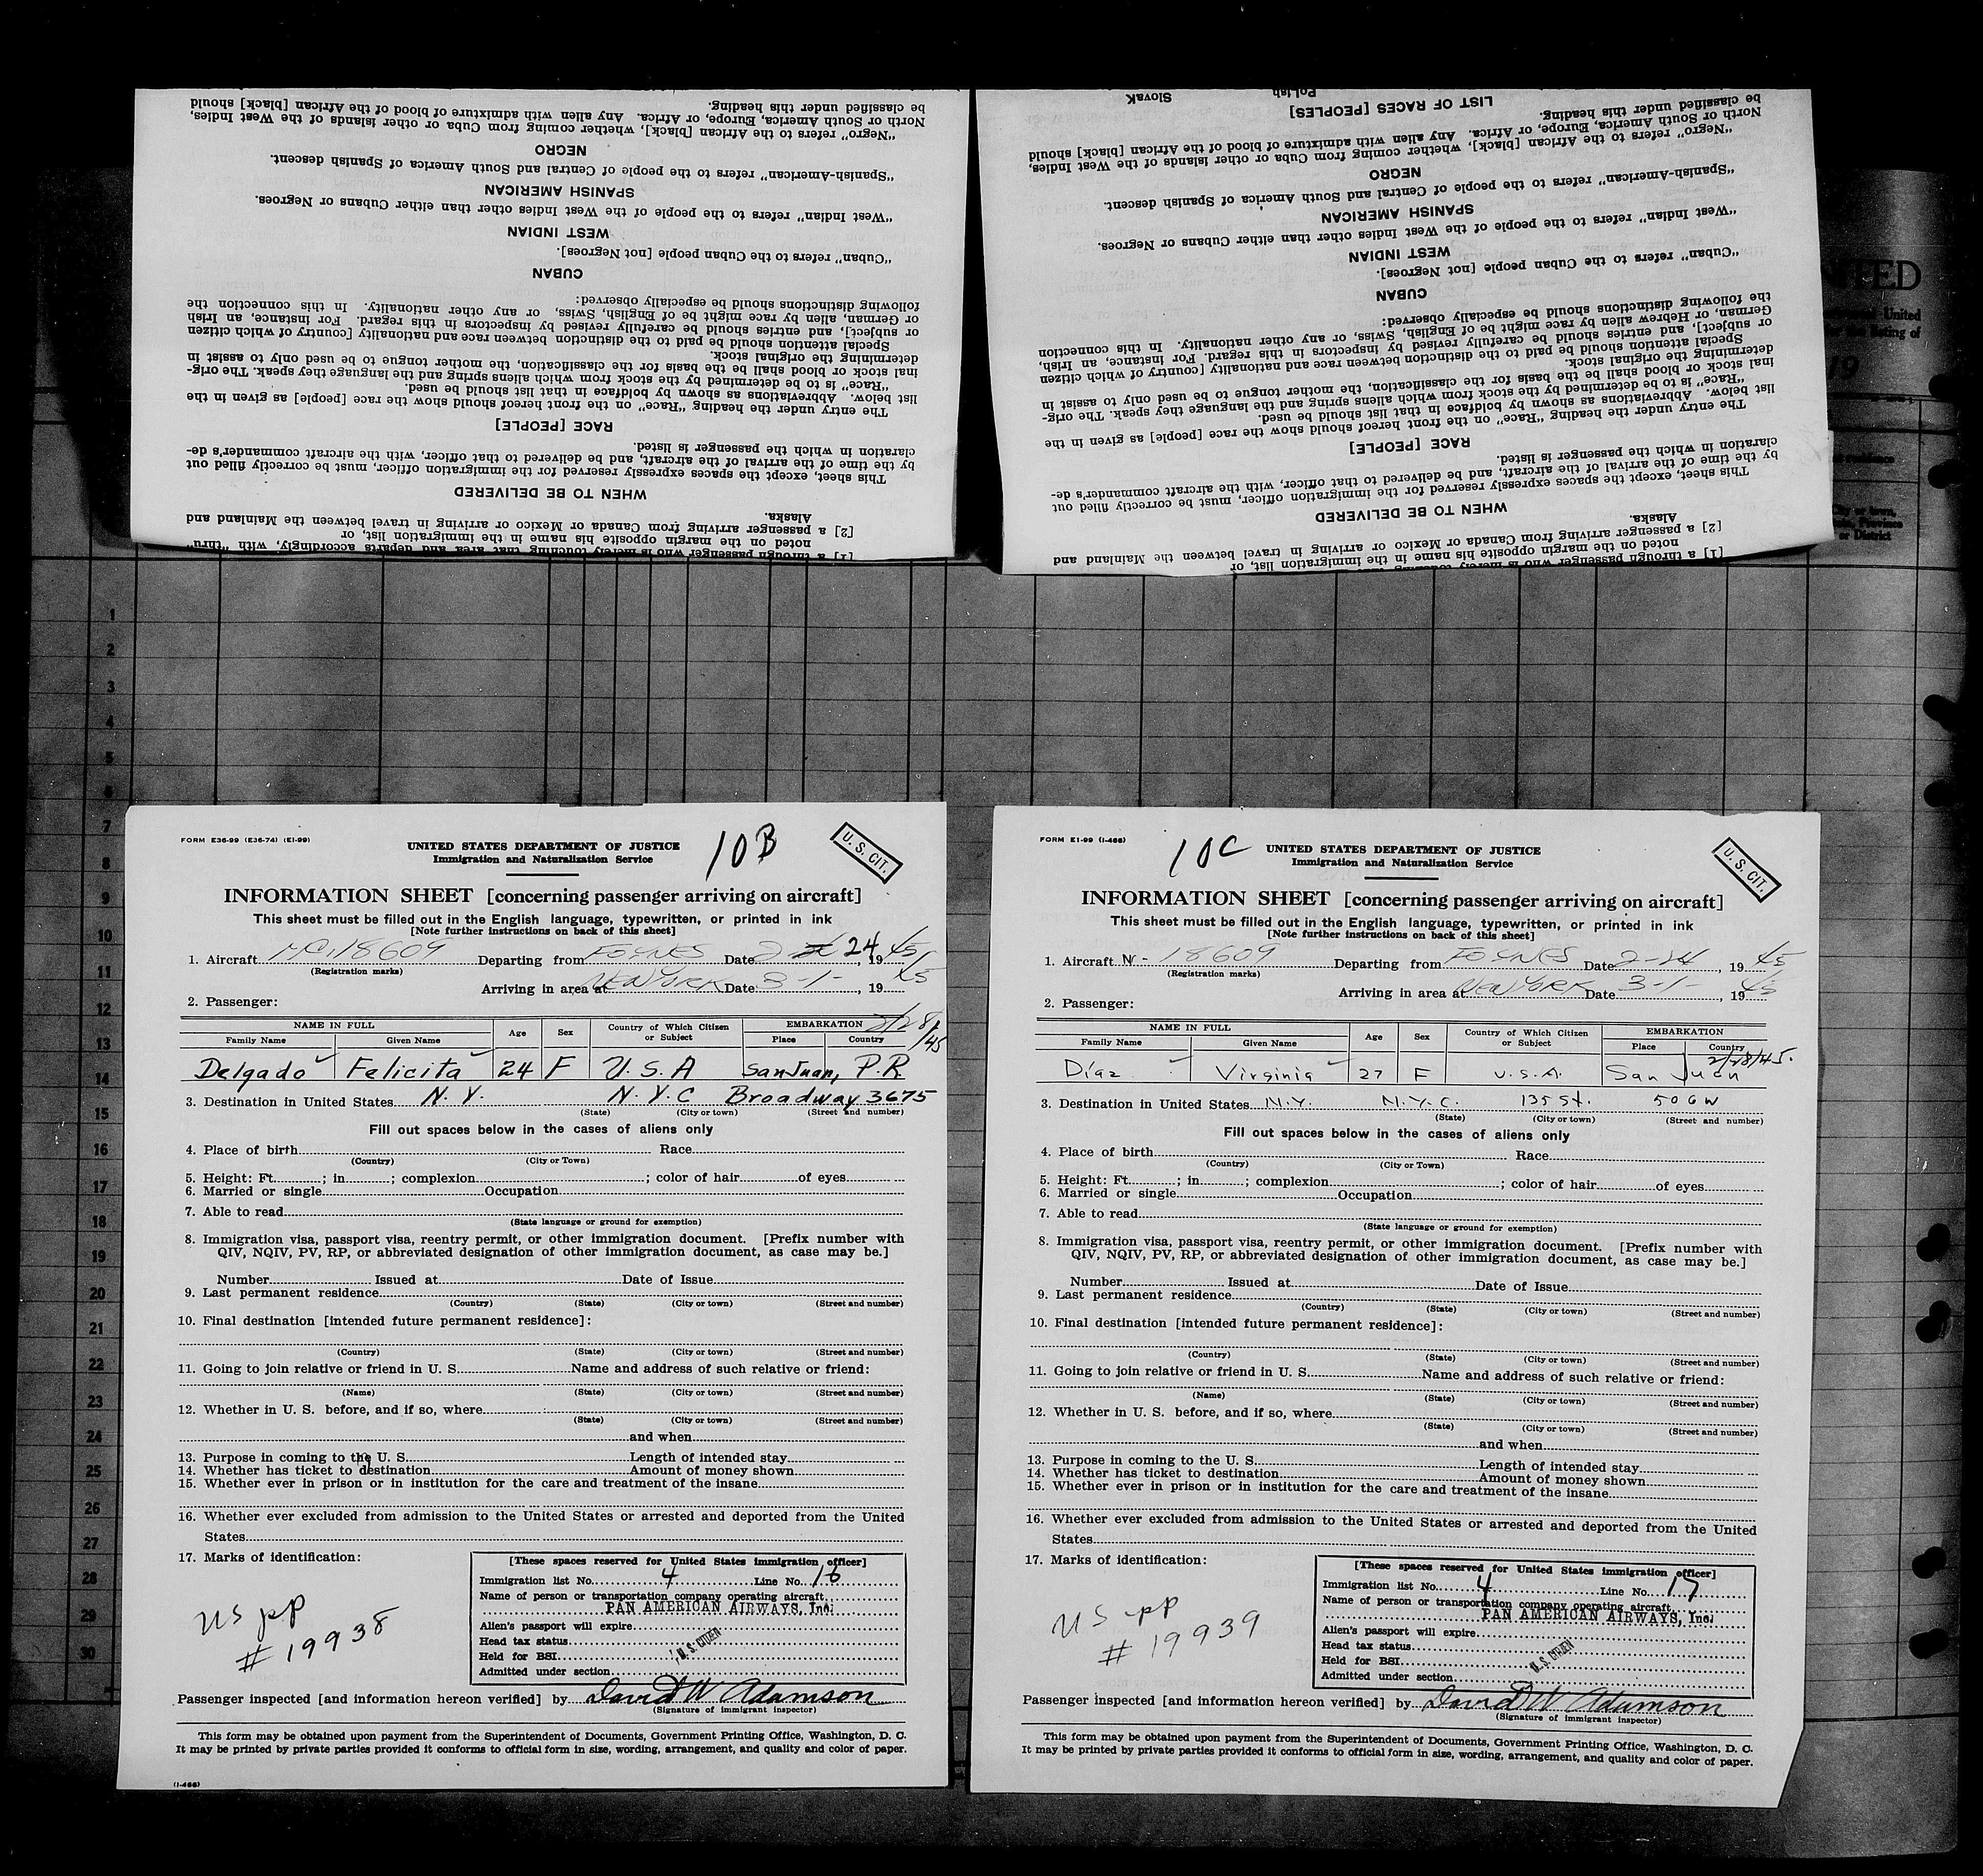 Slovak Polish
LIST OF RACES [PEOPLES]
[1] a through passenger who is merely touching that area and departs accordingly, with "thru"
noted on the margin opposite his name in the immigration list, or
[2] a passenger arriving from Canada or Mexico or arriving in travel between the Mainland and
Alaska.
WHEN TO BE DELIVERED
This sheet, except the spaces expressly reserved for the immigration officer, must be correctly filled out
by the time of the arrival of the aircraft, and be delivered to that officer, with the aircraft commander's de-
claration in which the passenger is listed.
RACE [PEOPLE]
The entry under the heading "Race" on the front hereof should show the race [people] as given in the
list below. Abbreviations as shown by boldface in that list should be used.
"Race" is to be determined by the stock from which aliens spring and the language they speak. The orig-
inal stock or blood shall be the basis for the classification, the mother tongue to be used only to assist in
determining the original stock.
Special attention should be paid to the distinction between race and nationality [country of which citizen
or subject], and entries should be carefully revised by inspectors in this regard. For instance, an Irish
or German, alien by race might be of English, Swiss, or any other nationality. In this connection the
following distinctions should be especially observed:
CUBAN
"Cuban" refers to the Cuban people [not Negroes].
WEST INDIAN
"West Indian" refers to the people of the West Indies other than either Cubans or Negroes.
SPANISH AMERICAN
"Spanish-American" refers to the people of Central and South America of Spanish descent.
NEGRO
"Negro" refers to the African [black], whether coming from Cuba or other islands of the West Indies,
North or South America, Europe, or Africa. Any alien with admixture of blood of the African [black] should
be classified under this heading.
[1] a through passenger who is merely touching
noted on the margin opposite his name in the immigration list, or
[2] a passenger arriving from Canada or Mexico or arriving in travel between the Mainland and
Alaska.
WHEN TO BE DELIVERED
This sheet, except the spaces expressly reserved for the immigration officer, must be correctly filled out
by the time of the arrival of the aircraft, and be delivered to that officer, with the aircraft commander's de-
claration in which the passenger is listed.
RACE [PEOPLE]
The entry under the heading "Race" on the front hereof should show the race [people] as given in the
list below. Abbreviations as shown by boldface in that list should be used.
"Race" is to be determined by the stock from which aliens spring and the language they speak. The orig-
inal stock or blood shall be the basis for the classification, the mother tongue to be used only to assist in
determining the original stock.
Special attention should be paid to the distinction between race and nationality [country of which citizen
or subject], and entries should be carefully revised by inspectors in this regard. For instance, an Irish,
German, or Hebrew alien by race might be of English, Swiss, or any other nationality. In this connection
the following distinctions should be especially observed:
CUBAN
"Cuban" refers to the Cuban people [not Negroes].
WEST INDIAN
"West Indian" refers to the people of the West Indies other than either Cubans or Negroes.
SPANISH AMERICAN
"Spanish-American" refers to the people of Central and South America of Spanish descent.
NEGRO
"Negro" refers to the African [black], whether coming from Cuba or other islands of the West Indies,
North or South America, Europe, or Africa. Any alien with admixture of blood of the African [black] should
be classified under this heading.
United
listing of
19
City or town,
Province
or District
1
2
3
4
5
6
7
8
9
10
11
12
13
14
15
16
17
18
19
20
21
22
23
24
25
26
27
28
29
30
FORM E36-99 (E36-74) (E1-99)
10B
U. S. CIT.
UNITED STATES DEPARTMENT OF JUSTICE
Immigration and Naturalization Service
INFORMATION SHEET [concerning passenger arriving on aircraft]
This sheet must be filled out in the English language, typewritten, or printed in ink
[Note further instructions on back of this sheet]
1. Aircraft NC.18609 Departing from FOYNES Date 2 24, 1945
(Registration marks)
Arriving in area at NEW YORK Date 3-1-, 1945
2. Passenger:
2/28/45
NAME IN FULL Age Sex Country of Which Citizen or Subject EMBARKATION
Family Name Given Name Place Country
Delgado Felicita 24 F U.S.A San Juan, P.R
3. Destination in United States N.Y. N.Y.C Broadway 3675
(State) (City or town) (Street and number)
Fill out spaces below in the cases of aliens only
4. Place of birth Race
(Country) (City or Town)
5. Height: Ft. ; in ; complexion ; color of hair of eyes
6. Married or single Occupation
7. Able to read
(State language or ground for exemption)
8. Immigration visa, passport visa, reentry permit, or other immigration document. [Prefix number with
QIV, NQIV, PV, RP, or abbreviated designation of other immigration document, as case may be.]
Number Issued at Date of Issue
9. Last permanent residence
(Country) (State) (City or town) (Street and number)
10. Final destination [intended future permanent residence]:
(Country) (State) (City or town) (Street and number)
11. Going to join relative or friend in U. S. Name and address of such relative or friend:
(Name) (State) (City or town) (Street and number)
12. Whether in U. S. before, and if so, where
(State) (City or town) (Street and number)
and when
13. Purpose in coming to the U. S. Length of intended stay
14. Whether has ticket to destination Amount of money shown
15. Whether ever in prison or in institution for the care and treatment of the insane
16. Whether ever excluded from admission to the United States or arrested and deported from the United
States
17. Marks of identification:
US pp
# 19938
[These spaces reserved for United States immigration officer]
Immigration list No. 4 Line No. 16
Name of person or transportation company operating aircraft
PAN AMERICAN AIRWAYS, Inc.
Alien's passport will expire
Head tax status
U.S. CITIZEN
Held for BSI
Admitted under section
Passenger inspected [and information hereon verified] by David W Adamson
(Signature of immigrant inspector)
This form may be obtained upon payment from the Superintendent of Documents, Government Printing Office, Washington, D. C.
It may be printed by private parties provided it conforms to official form in size, wording, arrangement, and quality and color of paper.
(I-466)
FORM E1-99 (I-466)
10C
U. S. CIT.
UNITED STATES DEPARTMENT OF JUSTICE
Immigration and Naturalization Service
INFORMATION SHEET [concerning passenger arriving on aircraft]
This sheet must be filled out in the English language, typewritten, or printed in ink
[Note further instructions on back of this sheet]
1. Aircraft N - 18609 Departing from FOYNES Date 2-24, 1945
(Registration marks)
Arriving in area at NEW YORK Date 3-1-, 1945
2. Passenger:
NAME IN FULL Age Sex Country of Which Citizen or Subject EMBARKATION
Family Name Given Name Place Country
2/28/45.
Díaz Virginia 27 F U.S.A. San Juan
3. Destination in United States N.Y. N.Y.C. 135 St. 506 W
(State) (City or town) (Street and number)
Fill out spaces below in the cases of aliens only
4. Place of birth Race
(Country) (City or Town)
5. Height: Ft. ; in ; complexion ; color of hair of eyes
6. Married or single Occupation
7. Able to read
(State language or ground for exemption)
8. Immigration visa, passport visa, reentry permit, or other immigration document. [Prefix number with
QIV, NQIV, PV, RP, or abbreviated designation of other immigration document, as case may be.]
Number Issued at Date of Issue
9. Last permanent residence
(Country) (State) (City or town) (Street and number)
10. Final destination [intended future permanent residence]:
(Country) (State) (City or town) (Street and number)
11. Going to join relative or friend in U. S. Name and address of such relative or friend:
(Name) (State) (City or town) (Street and number)
12. Whether in U. S. before, and if so, where
(State) (City or town) (Street and number)
and when
13. Purpose in coming to the U. S. Length of intended stay
14. Whether has ticket to destination Amount of money shown
15. Whether ever in prison or in institution for the care and treatment of the insane
16. Whether ever excluded from admission to the United States or arrested and deported from the United
States
17. Marks of identification:
US pp
# 19939
[These spaces reserved for United States immigration officer]
Immigration list No. 4 Line No. 17
Name of person or transportation company operating aircraft
PAN AMERICAN AIRWAYS, Inc.
Alien's passport will expire
Head tax status
U.S. CITIZEN
Held for BSI
Admitted under section
Passenger inspected [and information hereon verified] by David W Adamson
(Signature of immigrant inspector)
This form may be obtained upon payment from the Superintendent of Documents, Government Printing Office, Washington, D. C.
It may be printed by private parties provided it conforms to official form in size, wording, arrangement, and quality and color of paper.